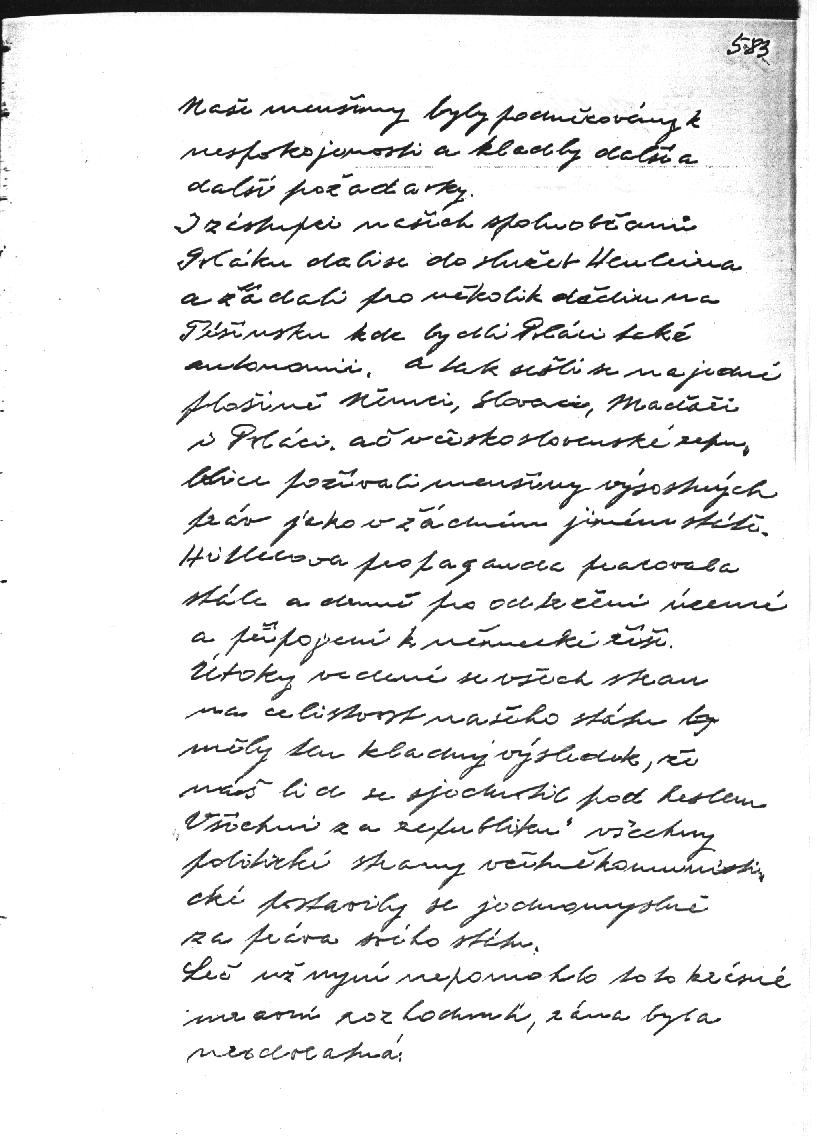 583
Naše menšiny byly podněcovány k
nespokojenosti a kladly další a
další požadavky.
I zástupci našich spoluobčanů
Poláků dali se do služeb Henleina
a žádali pro několik dědin na
Těšínsku kde bydlí Poláci také
autonomii. A tak sešli se na jedné
plošině Němci, Slováci, Maďaři
i Poláci. ač v československé repu„
blice požívali menšiny výsostných
práv jako v žádném jiném státě.
Hitlerova propaganda pracovala
stále a denně pro odtržení území
a připojení k německé říši.
Útoky vedené se všech stran
na celistvost našeho státu
měly ten kladný výsledek, že
náš lid se sjednotil pod heslem
„Všichni za republiku" všechny
politické strany včetně komunisti„
cké postavily se jednomyslně
za práva svého státu.
Leč už nyní nepomohlo toto krásné
mravní rozhodnutí, rána byla